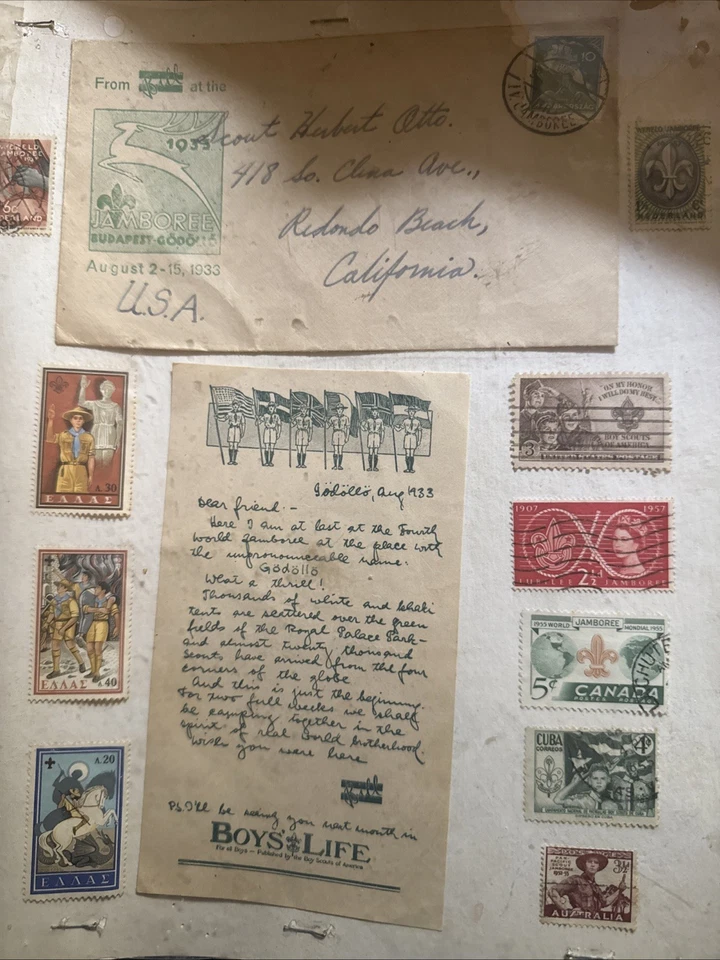 From at the
1933
JAMBOREE
BUDAPEST-GÖDÖLLŐ
August 2-15, 1933
U.S.A.
Scout Herbert Otto.
418 So. Elena Ave.,
Redondo Beach,
California.
10
JAMBOREE
WORLD
JAMBOREE
6c
NEDERLAND
Λ. 30
ΕΛΛΑΣ
ΕΛΛΑΣ Λ. 40
Λ. 20
ΕΛΛΑΣ
Gödöllő, Aug 1933
Dear friend:-
Here I am at last at the Fourth
World Jamboree at the place with
the unpronounceable name:
Gödöllő
What a thrill!
Thousands of white and khaki
tents are scattered over the green
fields of the Royal Palace Park-
and almost twenty thousand
Scouts have arrived from the four
corners of the globe
And this is just the beginning.
For two full weeks we shall
be camping together in the
spirit of real world brotherhood.
Wish you were here
P.S. I'll be seeing you next month in
BOYS' LIFE
For all Boys - Published by the Boy Scouts of America
"ON MY HONOR
I WILL DO MY BEST..."
BOY SCOUTS
OF AMERICA
3¢ UNITED STATES POSTAGE
1907 1957
2½
JUBILEE JAMBOREE
1955 WORLD JAMBOREE MONDIAL 1955
5¢ CANADA
POSTES POSTAGE
CUBA
CORREOS
4¢
PAN
PACIFIC
SCOUT
JAMBOREE
3½D
AUSTRALIA